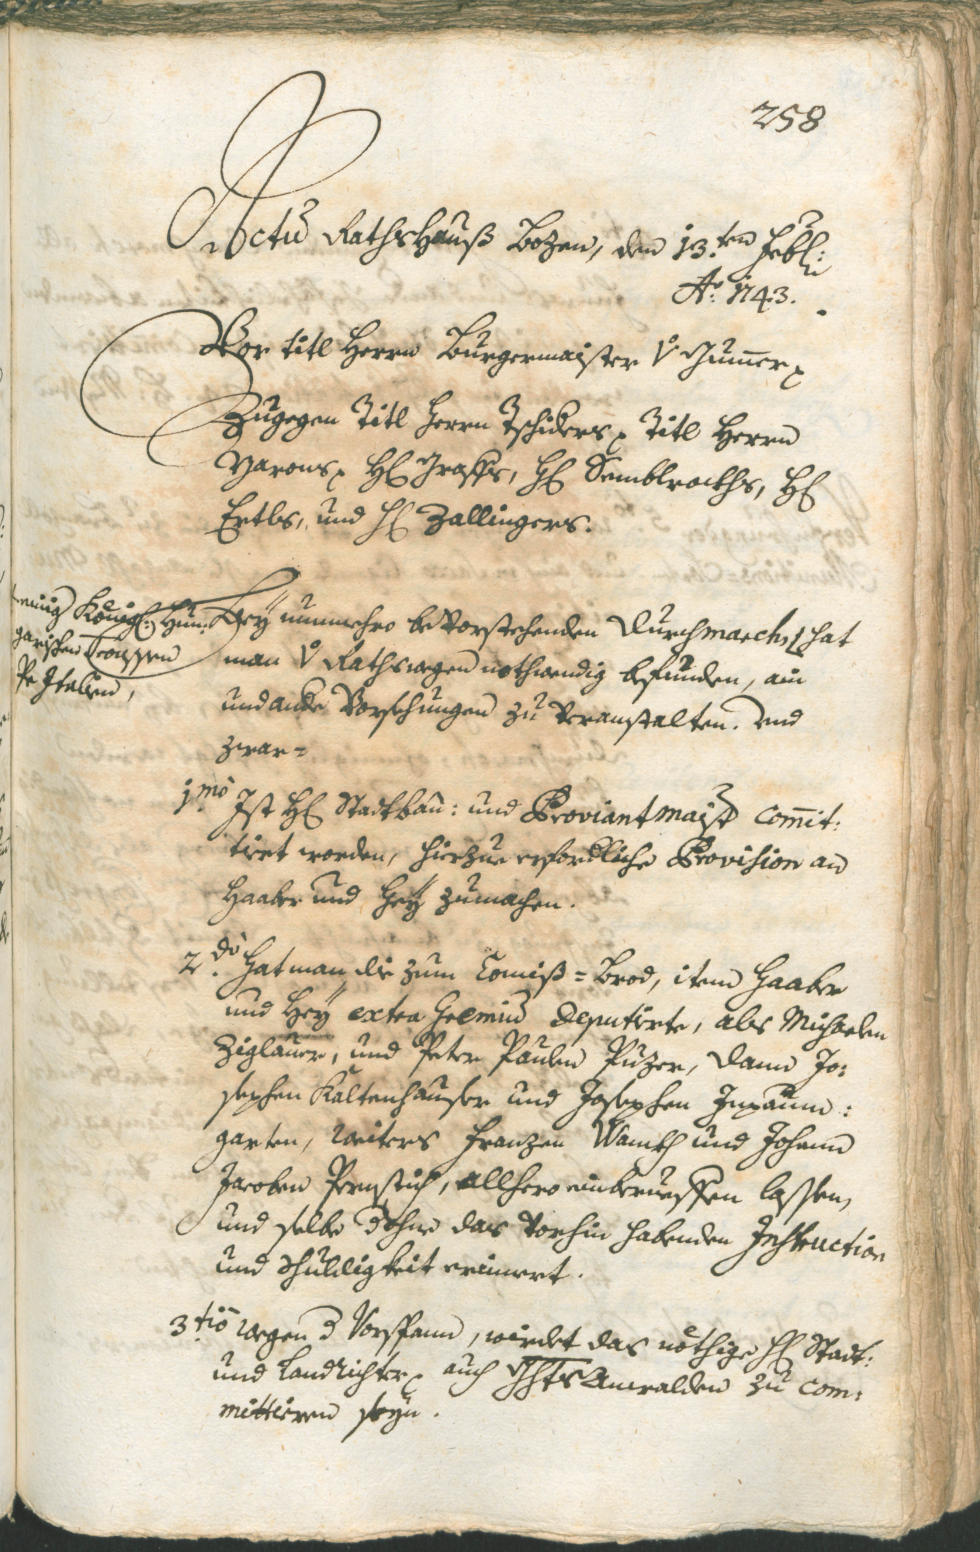 258
Actu Rathshauß Bozen, den 13.ten Febr:
Ao: 1743.
Vor titl Herrn Burgermaister V Gumer
Zugegen Titl Herrn Tschiders, Titl Herrn
Marons, H. Graffs, H. Semblrockhs, H.
Ertls, und H. Zallingers.
einig Königl: Hun-
garischen Troussen
Pr Italien,
Bey nunmehro bevorstehenden Durchmarch, hat
man V Rathswegen nothwendig befunden, ain
und ande Vorsehungen zu veranstalten. Und
zwar=
1mo Ist H. Stadtbau: und Proviantmaistr committ:
tirt worden, hierzue erfordliche Provision an
Haaber und Hey zumachen.
2do Hat man die zum Comiß=Brod, item Haaber
und Hey extra Gremium deputirte, als Michaelen
Ziglauer, und Peter Paulen Puzer, dann Jo:
sephen Kaltenhauser und Josephen Inpäum:
garten, weiters Franzen Wamth und Johann
Jacoben Pernstich, allhero einberueffen lassen,
und selbe dahin das vorhin habenden Instruction
und Schuldigkeit erinnert.
3tio Wegen d Vorspann, wirdet das nöthige H. Stadt:
und Landrichter, auch GhtsAnwalden zu com:
mittieren seyn.